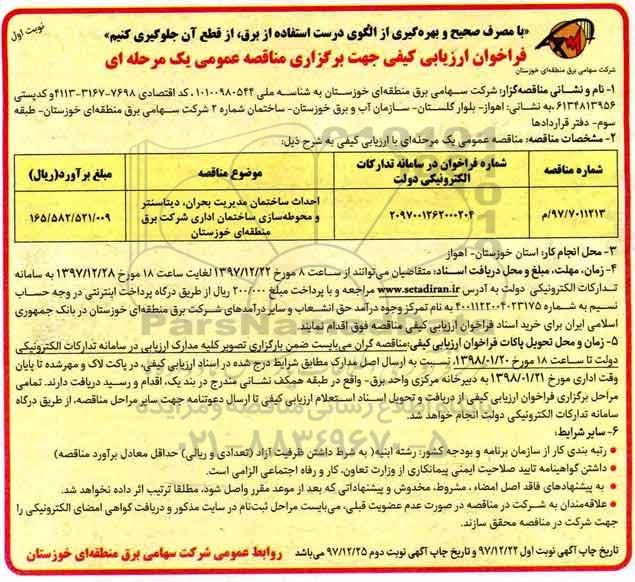 نوبت اول
«با مصرف صحیح و بهره‌گیری از الگوی درست استفاده از برق، از قطع آن جلوگیری کنیم»
فراخوان ارزیابی کیفی جهت برگزاری مناقصه عمومی یک مرحله ای
شرکت سهامی برق منطقه‌ای خوزستان
۱- نام و نشانی مناقصه‌گزار: شرکت سهامی برق منطقه‌ای خوزستان به شناسه ملی ۱۰۱۰۰۹۸۰۵۴۴، کد اقتصادی ۷۶۹۸-۳۱۶۷-۴۱۱۳ و کدپستی
۶۱۳۴۸۱۳۹۵۶، به نشانی: اهواز- بلوار گلستان- سازمان آب و برق خوزستان- ساختمان شماره ۲ شرکت سهامی برق منطقه‌ای خوزستان- طبقه
سوم- دفتر قراردادها
۲- مشخصات مناقصه: مناقصه عمومی یک مرحله‌ای با ارزیابی کیفی به شرح ذیل:
شماره مناقصه
شماره فراخوان در سامانه تدارکات الکترونیکی دولت
موضوع مناقصه
مبلغ برآورد(ریال)
۹۷/۷۰۱۱۲۱۳/م
۲۰۹۷۰۰۱۲۶۲۰۰۰۲۰۴
احداث ساختمان مدیریت بحران، دیتاسنتر
و محوطه‌سازی ساختمان اداری شرکت برق
منطقه‌ای خوزستان
۱۶۵/۵۸۲/۵۲۱/۰۰۹
۳- محل انجام کار: استان خوزستان- اهواز
۴- زمان، مهلت، مبلغ و محل دریافت اسناد: متقاضیان می‌توانند از ساعت ۸ مورخ ۱۳۹۷/۱۲/۲۲ لغایت ساعت ۱۸ مورخ ۱۳۹۷/۱۲/۲۸ به سامانه
تدارکات الکترونیکی دولت به آدرس www.setadiran.ir مراجعه و با پرداخت مبلغ ۲۰۰/۰۰۰ ریال از طریق درگاه پرداخت اینترنتی در وجه حساب
نسیم به شماره ۴۰۰۱۱۲۲۰۰۴۰۲۳۱۷۵ به نام تمرکز وجوه درآمد حق انشعاب و سایر درآمدهای شرکت برق منطقه‌ای خوزستان در بانک جمهوری
اسلامی ایران برای خرید اسناد فراخوان ارزیابی کیفی مناقصه فوق اقدام نمایند.
۵- زمان و محل تحویل پاکات فراخوان ارزیابی کیفی: مناقصه گران می‌بایست ضمن بارگزاری تصویر کلیه مدارک ارزیابی در سامانه تدارکات الکترونیکی
دولت تا ساعت ۱۸ مورخ ۱۳۹۸/۰۱/۲۰، نسبت به ارسال اصل مدارک مطابق شرایط درج شده در اسناد ارزیابی کیفی، در پاکت لاک و مهرشده تا پایان
وقت اداری مورخ ۱۳۹۸/۰۱/۲۱ به دبیرخانه مرکزی واحد برق- واقع در طبقه همکف نشانی مندرج در بند یک، اقدام و رسید دریافت دارند. تمامی
مراحل برگزاری فراخوان ارزیابی کیفی از دریافت و تحویل اسناد استعلام ارزیابی کیفی تا ارسال دعوتنامه جهت سایر مراحل مناقصه، از طریق درگاه
سامانه تدارکات الکترونیکی دولت انجام خواهد شد.
۶- سایر شرایط:
• رتبه بندی کار از سازمان برنامه و بودجه کشور: رشته ابنیه( به شرط داشتن ظرفیت آزاد (تعدادی و ریالی) حداقل معادل برآورد مناقصه)
• داشتن گواهینامه تایید صلاحیت ایمنی پیمانکاری از وزارت تعاون، کار و رفاه اجتماعی الزامی است.
• به پیشنهادهای فاقد اصل امضاء، مشروط، مخدوش و پیشنهاداتی که بعد از موعد مقرر واصل شود، مطلقا ترتیب اثر داده نخواهد شد.
• علاقه‌مندان به شرکت در مناقصه در صورت عدم عضویت قبلی، می‌بایست مراحل ثبت‌نام در سایت مذکور و دریافت گواهی امضای الکترونیکی را
جهت شرکت در مناقصه محقق سازند.
تاریخ چاپ آگهی نوبت اول ۹۷/۱۲/۲۲ و تاریخ چاپ آگهی نوبت دوم ۹۷/۱۲/۲۵ می‌باشد
روابط عمومی شرکت سهامی برق منطقه‌ای خوزستان
۰۲۱-۸۸۳۴۹۶۷۰-۵